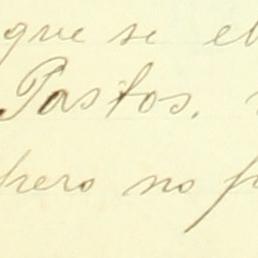 que se
Pastos.
pero no